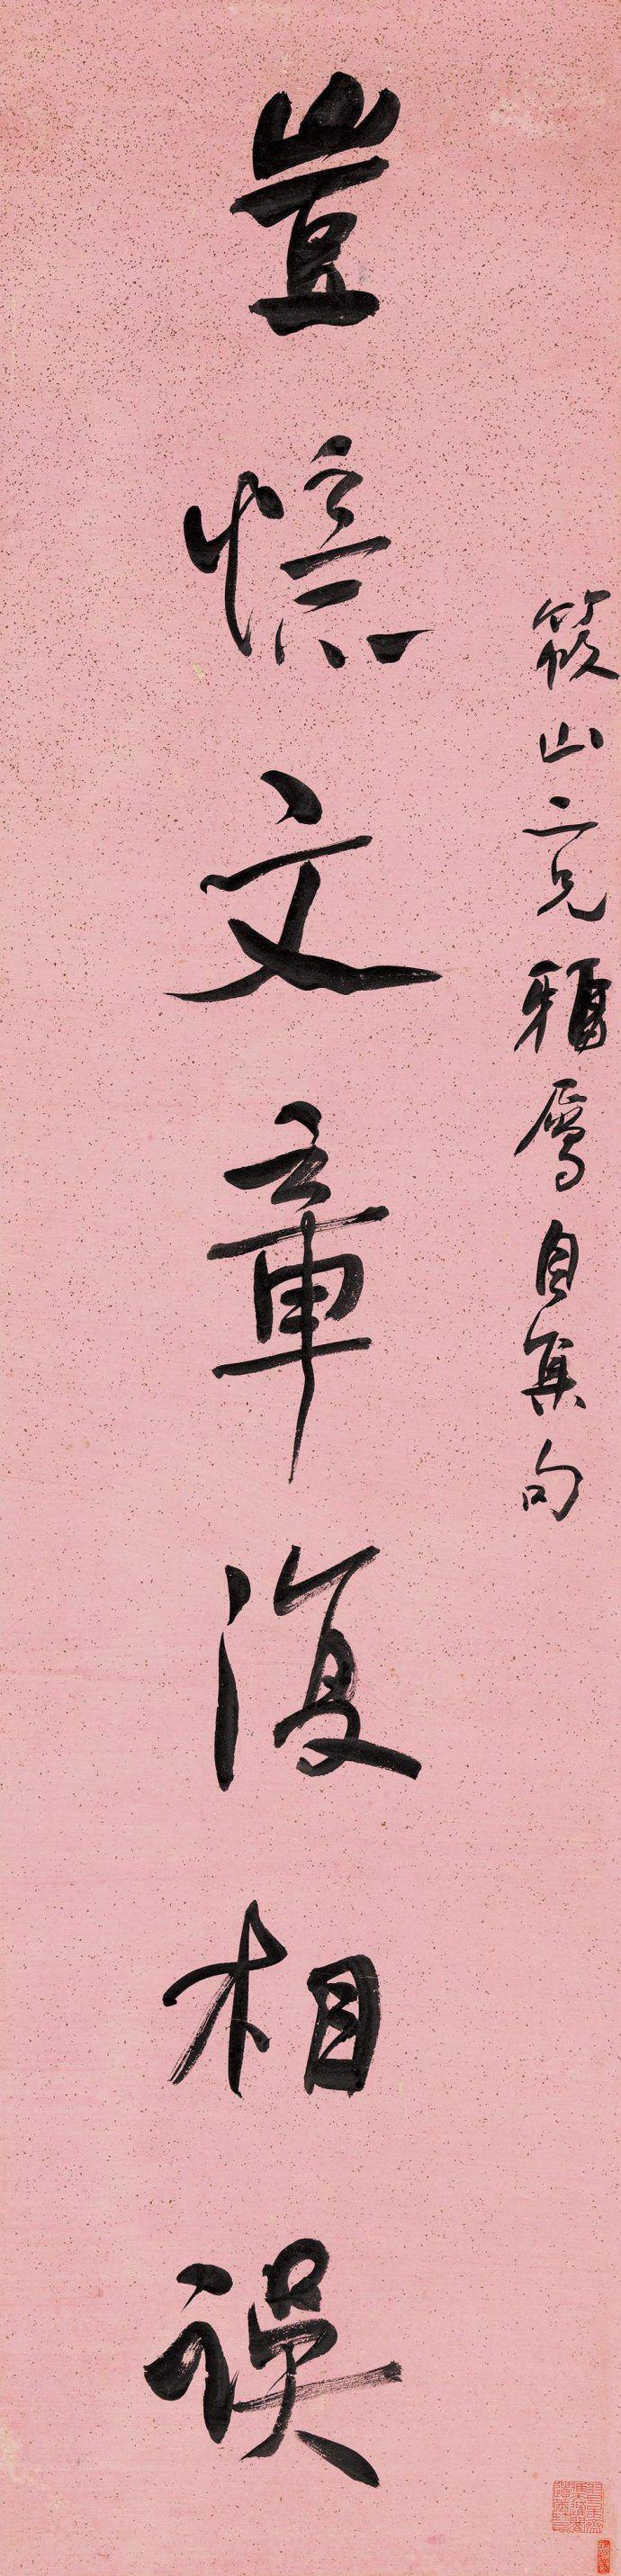 筱山二兄雅屬自集句
豈憶文章復相誤